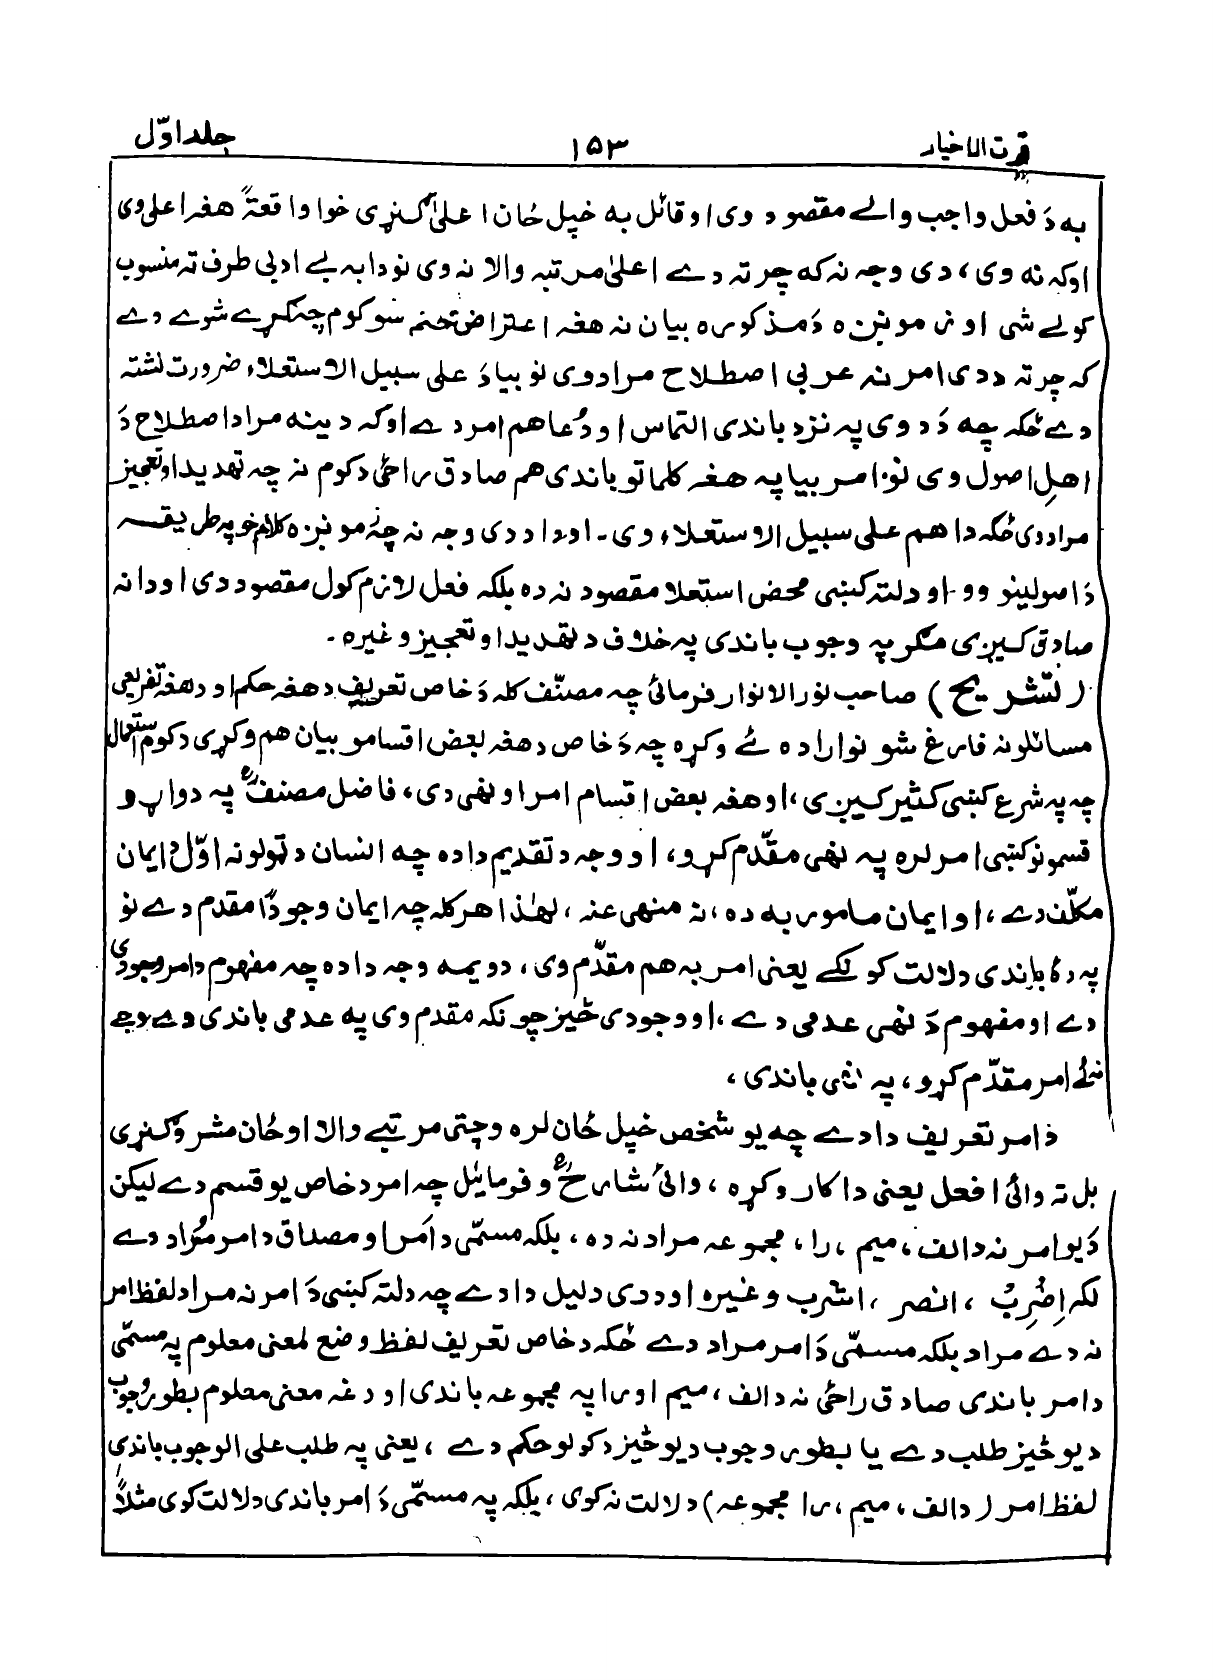 قرت الاخيار ١٥٣ جلد اوّل
به دَ فعل واجب والے مقصود وی او قائل به خپل ځان اعلیٰ کنړی خوا واقعةً هغه اعلی وی
اوکه نه وی، دی وجہ نہ که چرتہ دے اعلیٰ مرتبہ والا نہ وی نو دا بہ بے ادبی طرف تہ منسوب
کولے شی او زمونږه دَ مذکوره بیان نہ هغہ اعتراض ختم شو کوم چہ کړے شوے دے
کہ چرتہ ددی امر نہ عربی اصطلاح مراد وی نو بیا دَ علی سبیل الاستعلاء ضرورت نشتہ
دے ځکہ چه دَ دوی پہ نزد باندی التماس او دُعا هم امر دے اوکہ دینہ مراد اصطلاح دَ
اهلِ اصول وی نو امر بیا پہ هغہ کلماتو باندی هم صادق راځی دکوم نہ چہ تهدید او تعجیز
مراد وی ځکہ دا هم علی سبیل الاستعلاء وی۔ او دا د دی وجہ نہ چہ زمونږه کلام خو پہ طریقہ
دَ اصولینو وو او دلتہ کښی محض استعلا مقصود نہ ده بلکہ فعل لازم کول مقصود دی او دا نہ
صادق کیږی مگر پہ وجوب باندی پہ خلاف د تهدید او تعجیز وغیره ۔
(تشریح) صاحب نور الانوار فرمائی چہ مصنّف کلہ دَ خاص تعریف دهغہ حکم او دهغہ تفریعی
مسائلو نہ فارغ شو نو اراده ئے وکره چہ دَ خاص دهغہ بعض اقسامو بیان هم وکړی دکوم استعمال
چہ پہ شرع کښی کثیر کیږی، او هغہ بعض اقسام امر او نهی دی، فاضل مصنفؒ پہ دواړو
قسمونو کښی امر لره پہ نهی مقدّم کړو، او وجہ د تقدیم دا ده چہ انسان د ټولو نہ اوّل د ایمان
مکلّف دے، او ایمان مامور بہ ده، نہ منهی عنہ، لهٰذا هر کلہ چہ ایمان وجودًا مقدم دے نو
پہ ده باندی دلالت کونکے یعنی امر بہ هم مقدّم وی، دویمہ وجہ دا ده چہ مفهوم د امر وجودی
دے او مفهوم دَ نهی عدمی دے، او وجودی څیز چونکہ مقدم وی پہ عدمی باندی دے وجے
نہ ئے امر مقدّم کړو، پہ نهی باندی،
دَ امر تعریف دا دے چہ یو شخص خپل ځان لره وچتی مرتبے والا او ځان مشر وکنړی
بل تہ وائی افعل یعنی دا کار وکړه، وائی شارحؒ وفرمایئل چہ امر د خاص یو قسم دے لیکن
دَ یو امر نہ د الف، میم، را، مجموعہ مراد نہ ده، بلکہ مسمّی د اَمر او مصداق د امر مُراد دے
لکہ اِضْرِبْ، انصر، اشرب وغیره او د دی دلیل دا دے چہ دلتہ کښی دَ امر نہ مراد لفظ امر
نہ دے مراد بلکہ مسمّی دَ امر مراد دے ځکہ د خاص تعریف لفظ وضع لمعنی معلوم پہ مسمّی
د امر باندی صادق راځی نہ د الف، میم او را پہ مجموعہ باندی او دغہ معنی معلوم بطور وجوب
د یو څیز طلب دے یا بطور وجوب د یو څیز د کولو حکم دے، یعنی پہ طلب علی الوجوب باندی
لفظ امر (د الف، میم، را مجموعہ) دلالت نہ کوی، بلکہ پہ مسمّی دَ امر باندی دلالت کوی مثلاً